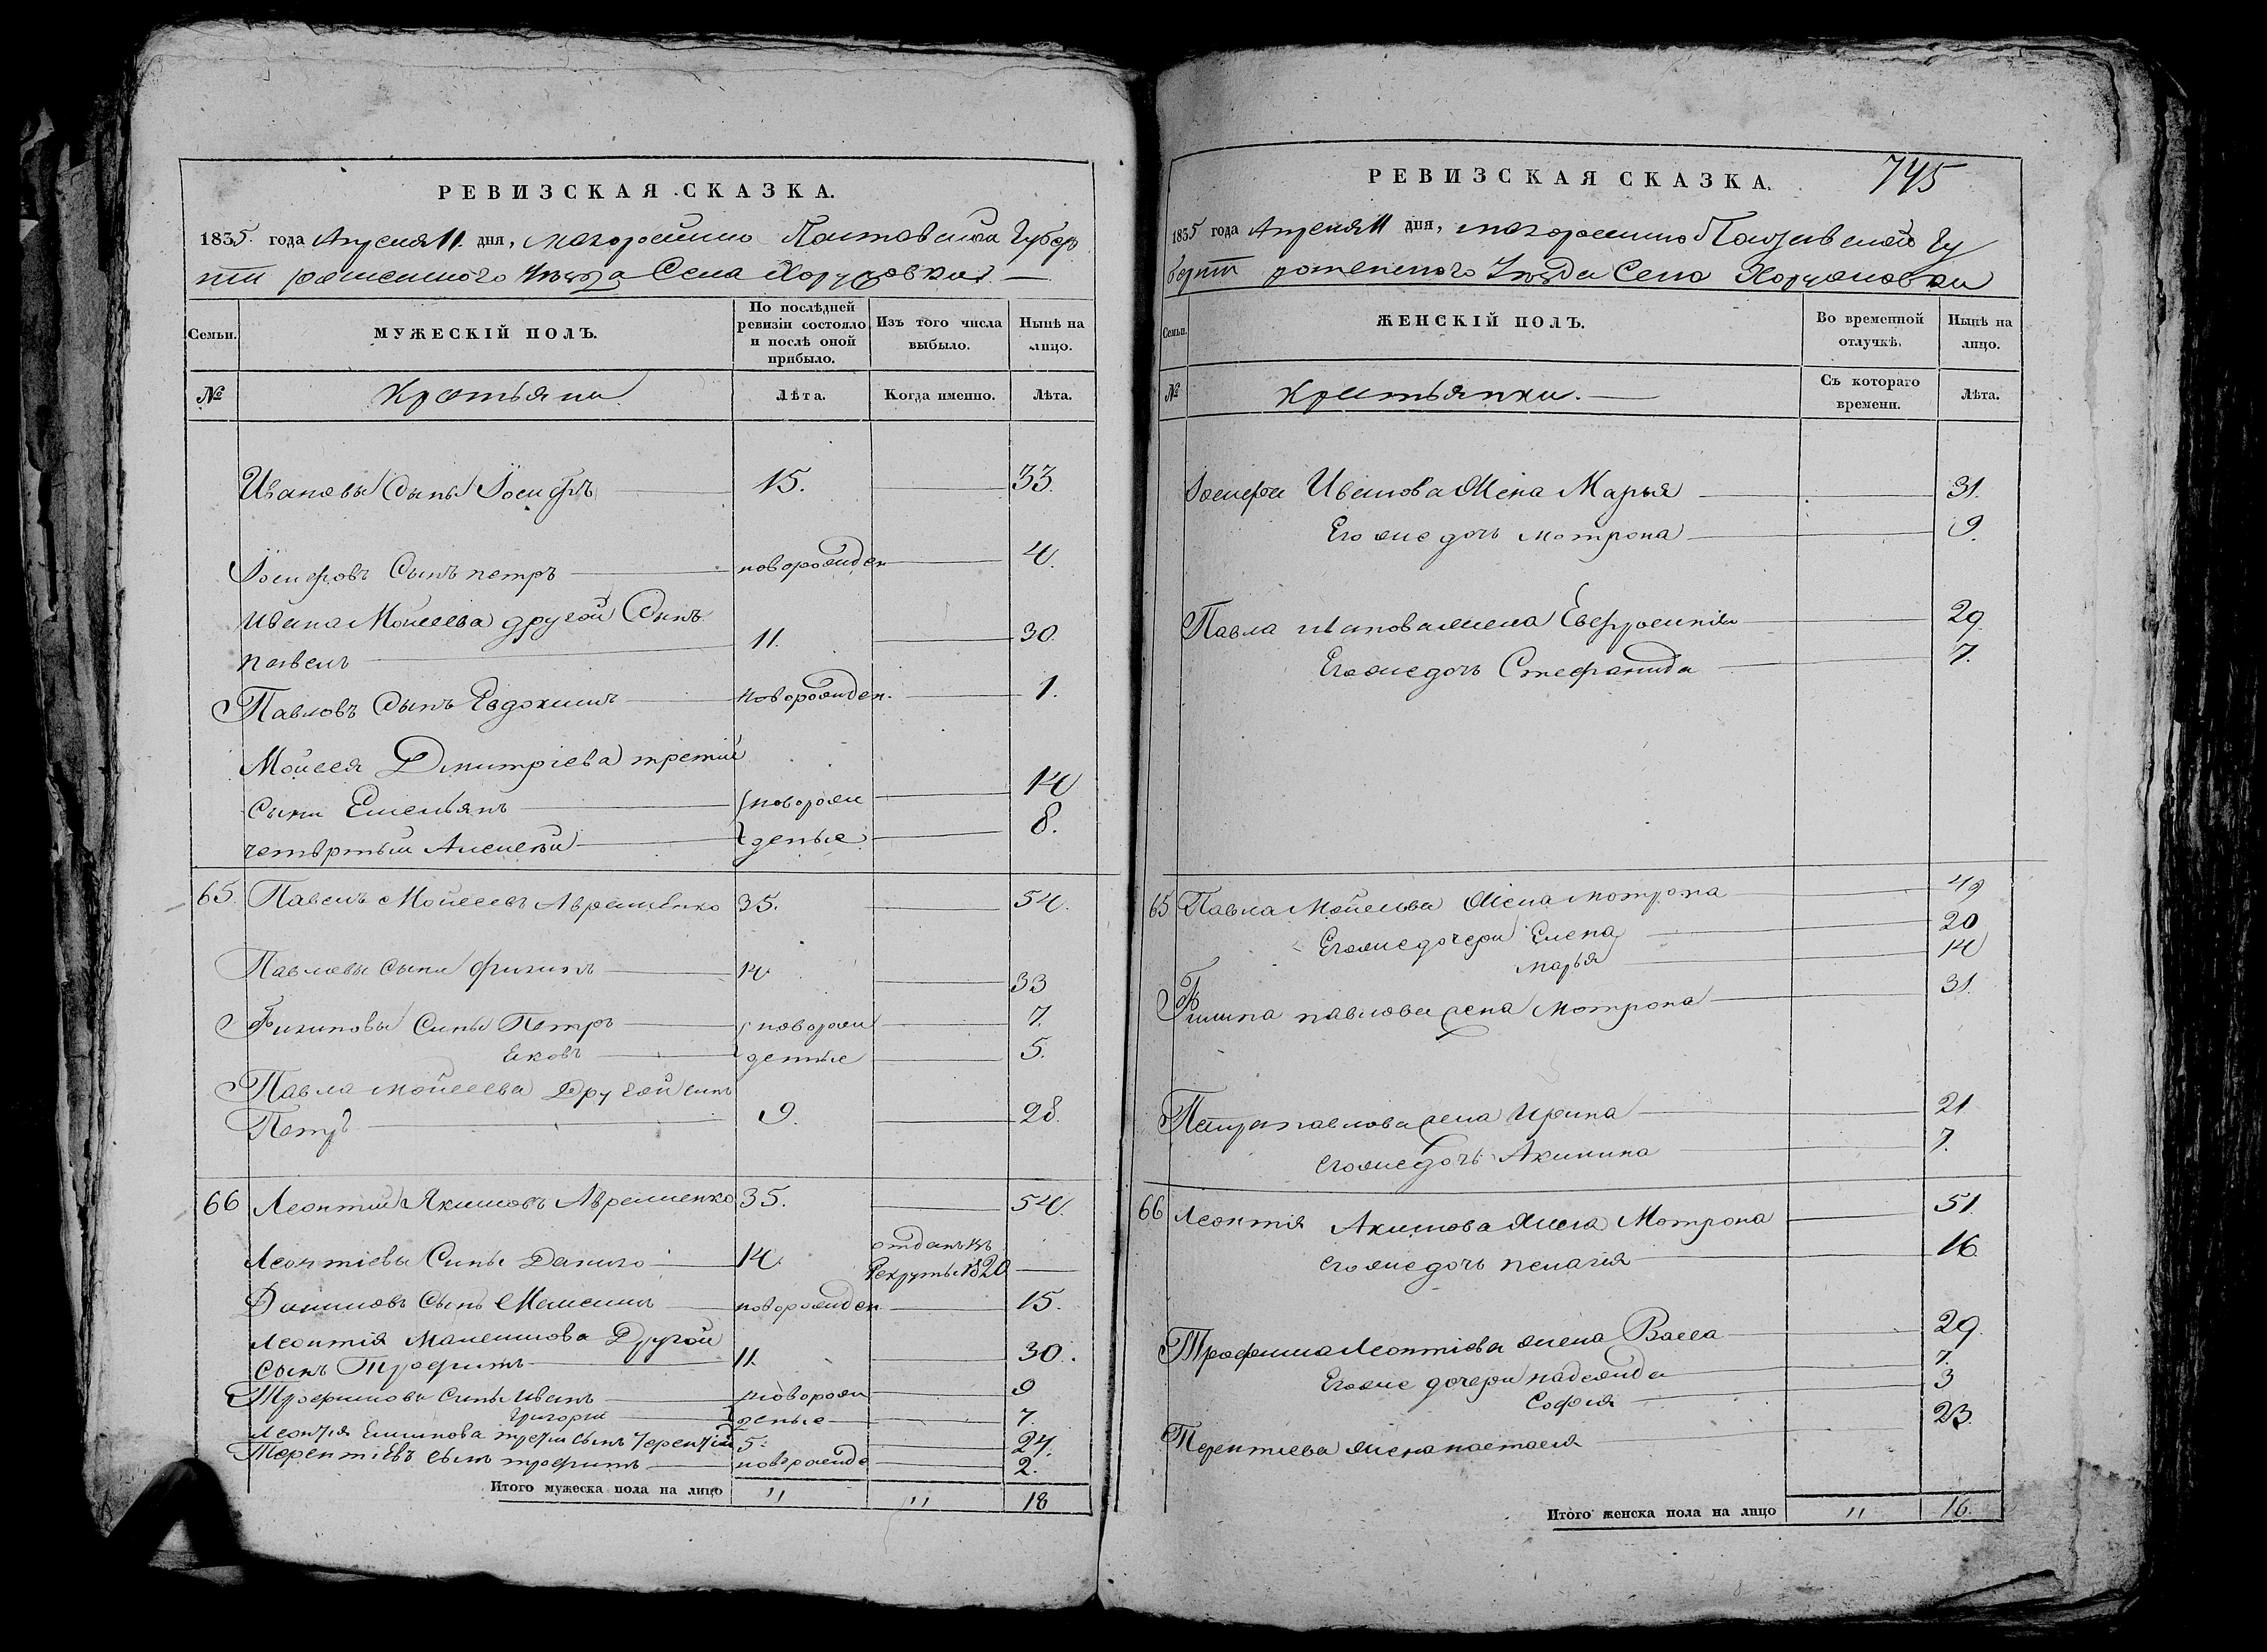 РЕВИЗСКАЯ СКАЗКА.
1835 года Апреля 11 дня, Малороссийско Полтавской Губер
нии роменского уезда Села
Семьи. МУЖЕСКІЙ ПОЛЪ. По послѣдней ревизіи состояло и послѣ оной прибыло. Изъ того числа выбыло. Нынѣ на лицо.
№ Крестьяни Лѣта. Когда именно. Лѣта.
Ивановы Сыны Іосифъ 15. 33.
Іосифовъ Сынъ петръ новорожден 4.
Ивана Мойсеева другой Сынъ
павелъ 11. 30.
Павловъ Сынъ Евдокимъ новорожден. 1.
Мойсея Дмитріева третій
сыни Емельянъ новорож 14
четвертый Алексѣй деные 8.
65. Павелъ Мойсеевъ Авраменко 35. 54.
Павловы сыни филипъ 14 33
Филиповы Сины Петръ новорож 7.
Яковъ денные 5.
Павла мойсеева Другой синъ
Петръ 9. 28.
66 Леонтий Якимовъ Авраменко 35. 54.
Леонтіевы Сины Данило 14. отданъ въ
Рекруты 1820
Даниловъ Сынъ Максимъ новорожден 15.
Леонтія Другой
сынъ Трофимъ 11. 30.
Трофимовы сины иванъ новорож 9
григорій деные 7.
Леонтія третій сынъ Терентій 5. 24.
Терентіевъ сынъ трофимъ новорожде 2.
Итого мужеска пола на лицо " " 18
РЕВИЗСКАЯ СКАЗКА. 745
1835 года Апреля 11 дня, малороссийско Полтавской Гу
берніи роменского уезда Села
Семьи. ЖЕНСКІЙ ПОЛЪ. Во временной отлучкѣ. Нынѣ на лицо.
№ Крестьянки. Съ котораго времени. Лѣта.
Іосифа Иванова Жена Марья 31.
Его же дочь мотрона 9.
Павла иванова жена Евфросинія 29
Его же дочь Стефанида 7.
65 Павла Мойсеева Жена мотрона 49
Его же дочери Елена 20
марья 14
Филипа павлова жена мотрона 31.
Петра павлова жена Ирина 21
его же дочь Акилина 7.
66 Леонтія Акимова Жена Мотрона 51.
его же дочь пелагия 16.
Трофима Леонтіева жена Васса 29.
Его же дочери надежда 7.
Софія 3
Терентиева жена настасія 23.
Итого женска пола на лицо " 16.